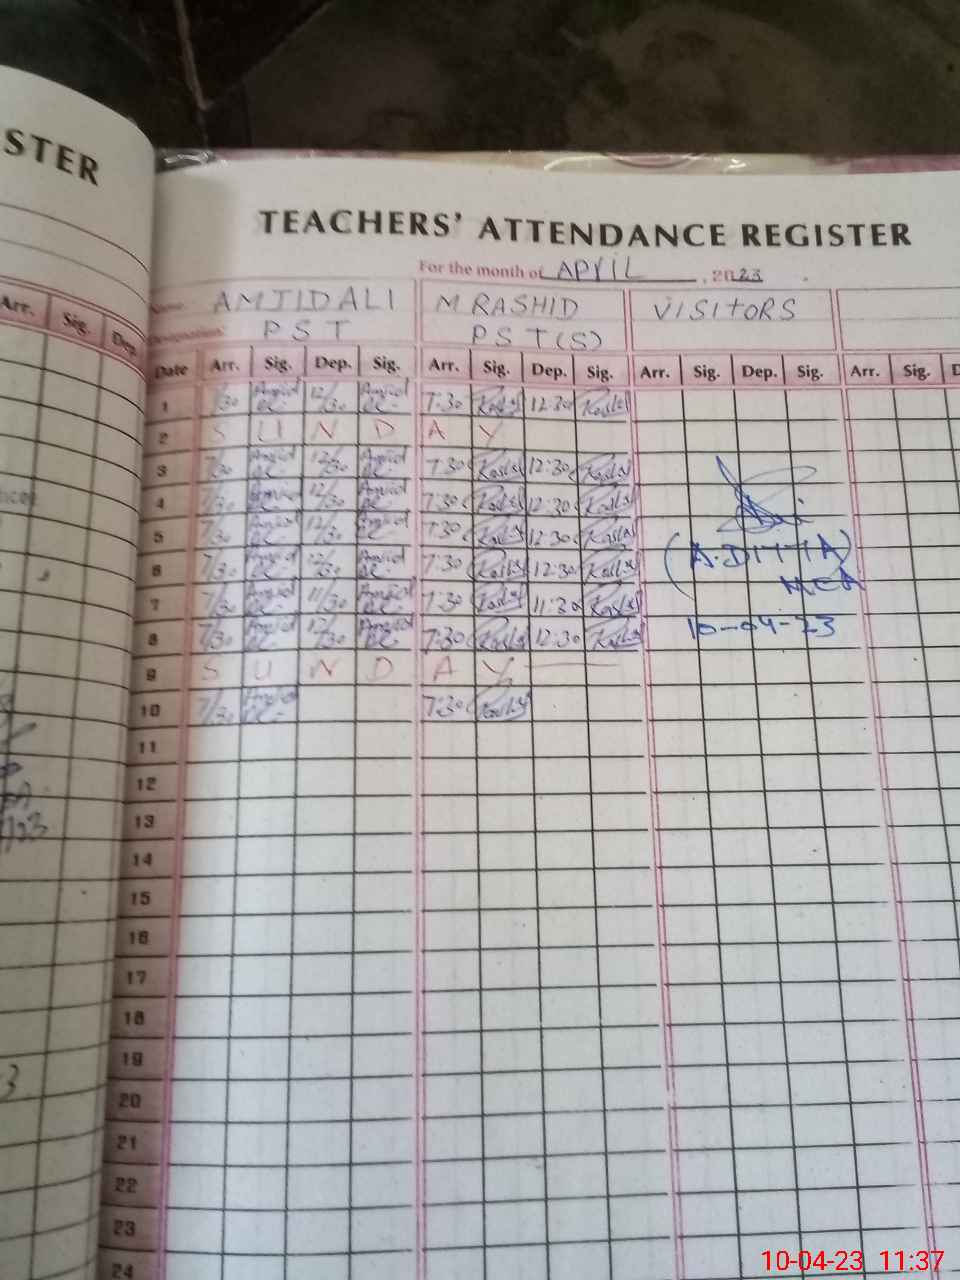 STER
Arr. Sig. Dep.
TEACHERS' ATTENDANCE REGISTER
For the month of APRIL, 2023.
Name: AMJID ALI M RASHID VISITORS
Designation: PST PST(S)
Date Arr. Sig. Dep. Sig. Arr. Sig. Dep. Sig. Arr. Sig. Dep. Sig. Arr. Sig. D
1 7/30 Amjid 12/30 Amjid 7:30 Rashid 12:30 Rashid
2 S U N D A Y
3 7/30 Amjid 12/30 Amjid 7:30 Rashid 12:30 Rashid
4 7/30 Amjid 12/30 Amjid 7:30 Rashid 12:30 Rashid
5 7/30 Amjid 12/30 Amjid 7:30 Rashid 12:30 Rashid
6 7/30 Amjid 12/30 Amjid 7:30 Rashid 12:30 Rashid
7 7/30 Amjid 11/30 Amjid 7:30 Rashid 11:30 Rashid
8 7/30 Amjid 12/30 Amjid 7:30 Rashid 12:30 Rashid
(A.DITTA)
MEA
10-04-23
9 S U N D A Y
10 7/30 Amjid 7:30 Rashid
11
12
13
14
15
16
17
18
19
20
21
22
23
24
10-04-23 11:37